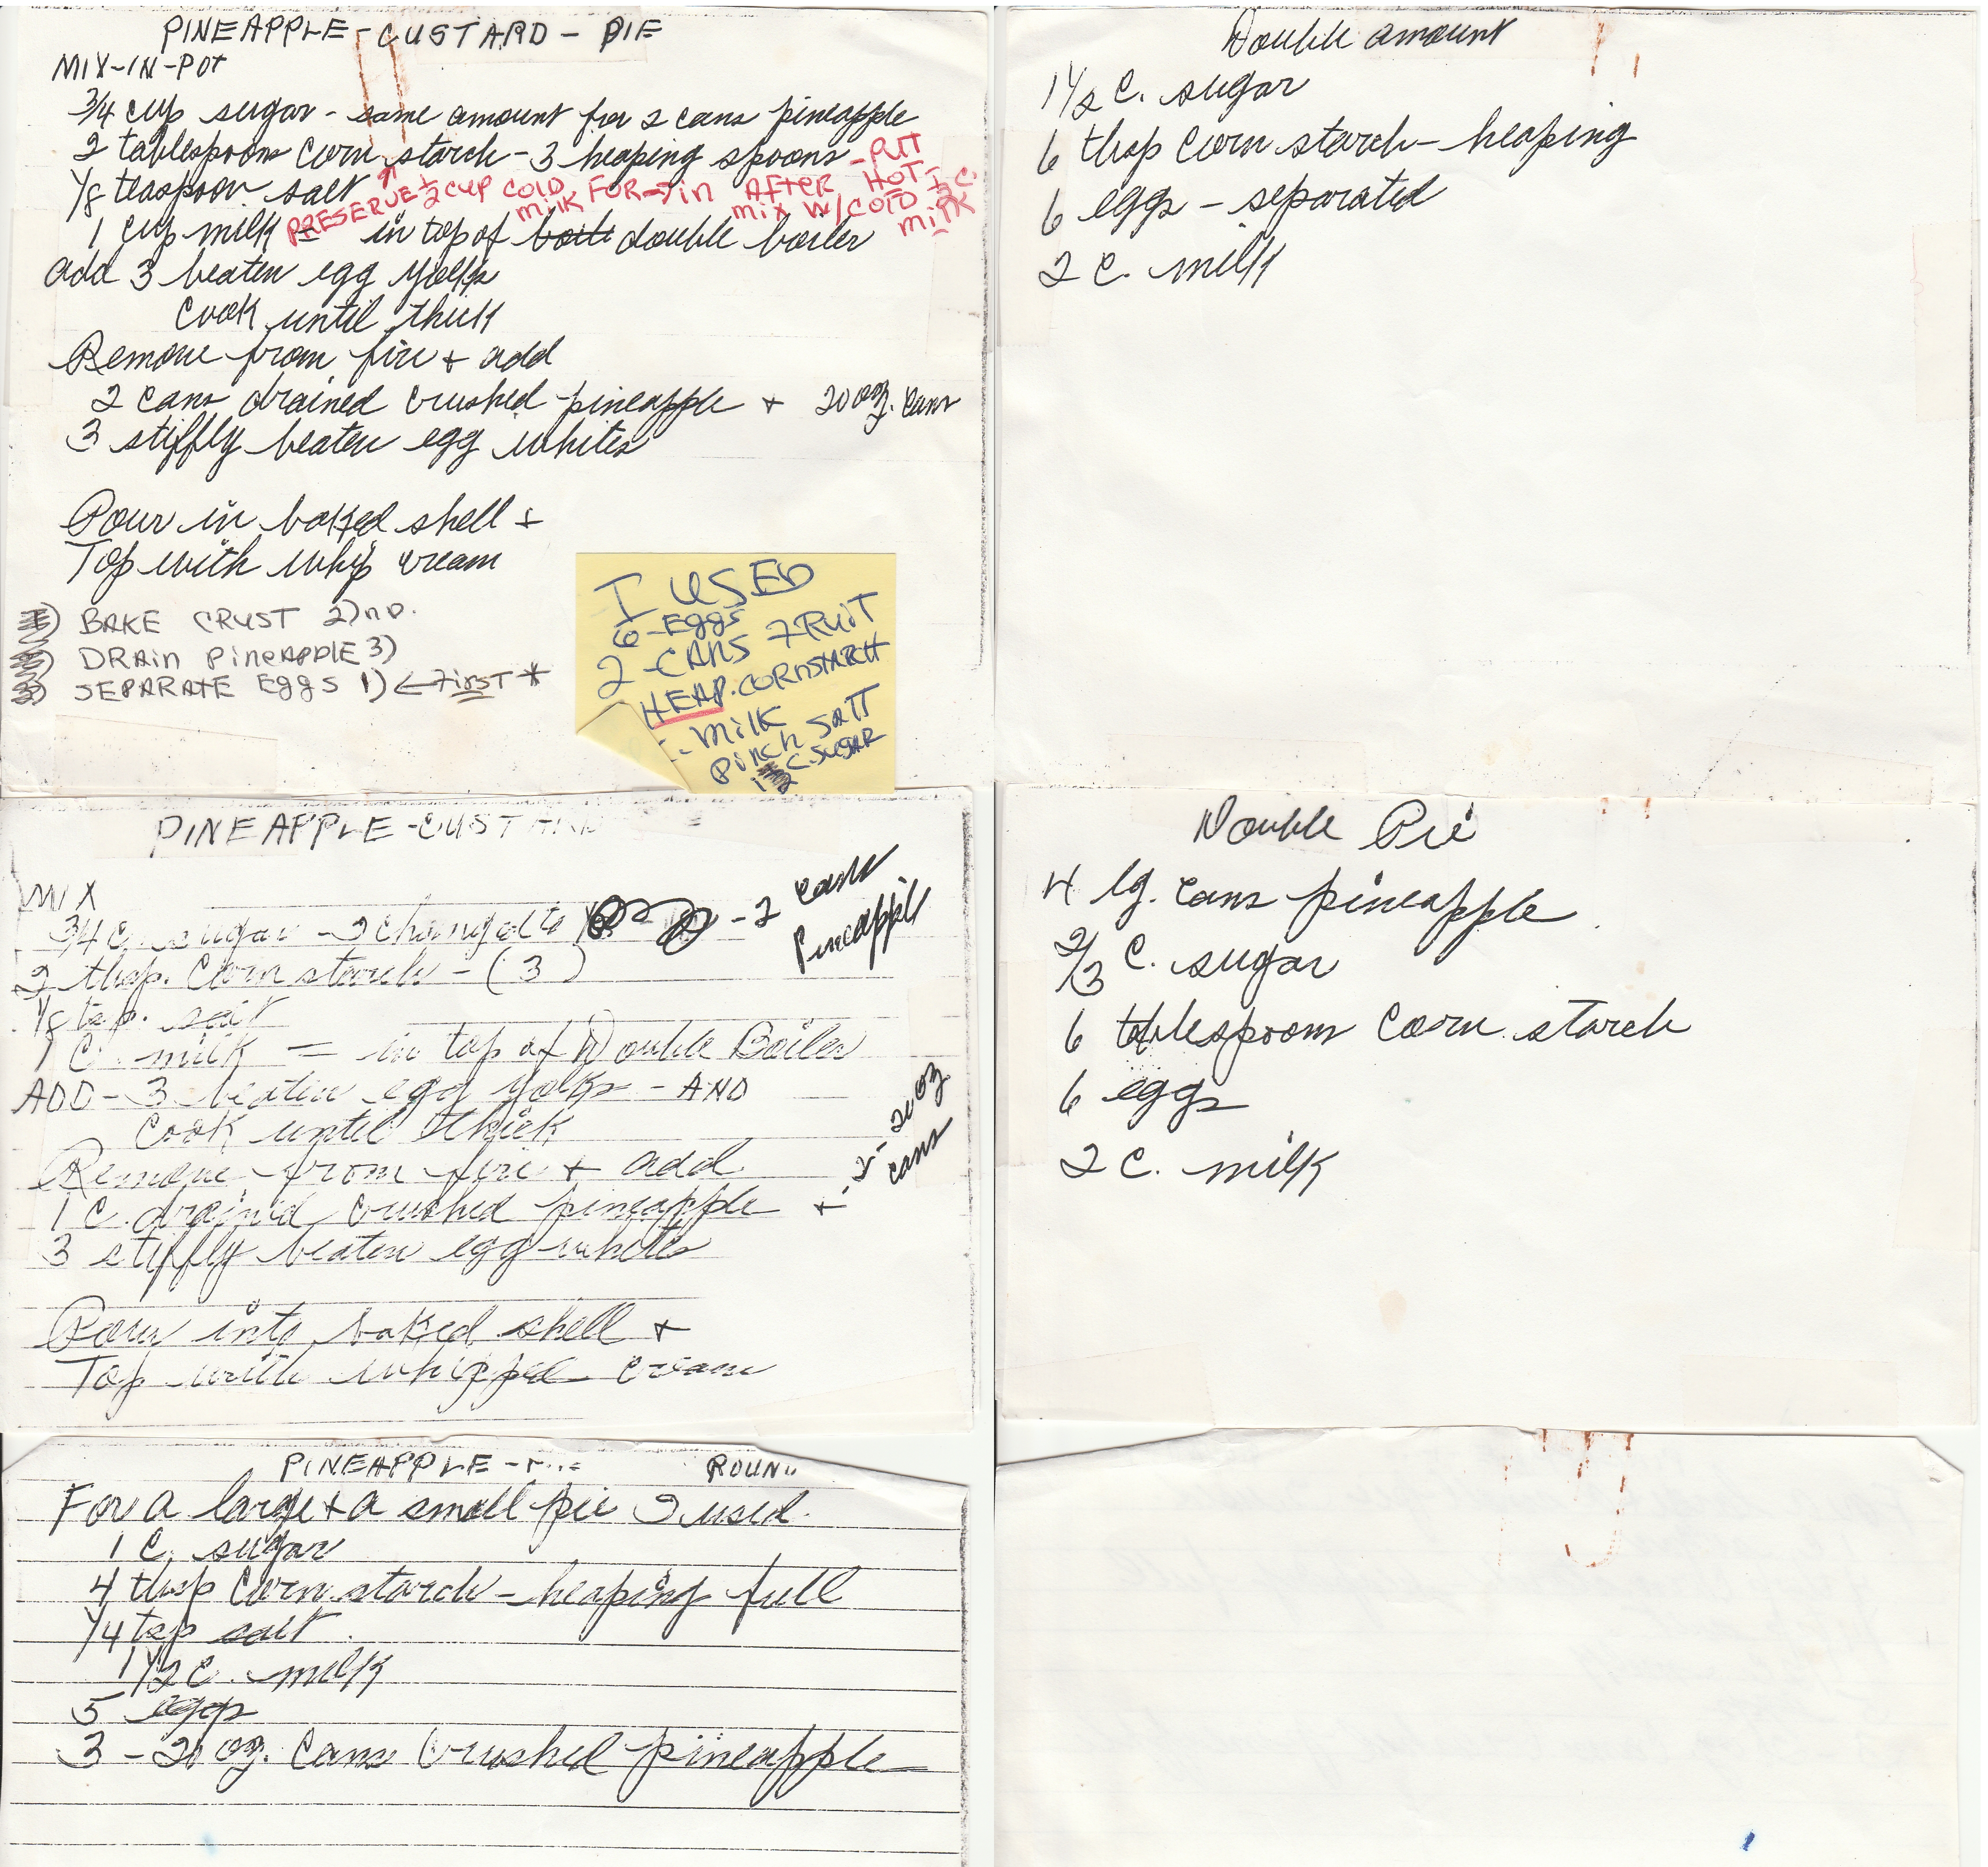 PINEAPPLE-CUSTARD-PIE
MIX-IN-POT
3/4 cup sugar - same amount for 2 cans pineapple
2 tablespoons corn starch - 3 heaping spoons - PUT
1/8 teaspoon salt PRESERVE 1/2 CUP COLD MILK FOR → in AFTER HOT
MIX W/COLD 1/2 C. MILK
1 cup milk = in top of double boiler
add 3 beaten egg yolks
Cook until thick
Remove from fire + add
2 cans drained crushed pineapple + 20 oz. cans
3 stiffly beaten egg whites
Pour in baked shell +
Top with whip cream
BAKE CRUST 2)nd.
DRAIN PINEAPPLE 3)
SEPARATE EGGS 1) ← FIRST *
I USED
6-EGGS
2-CANS FRUIT
HEAP. CORNSTARCH
MILK
PINCH SALT
C. SUGAR
Double amount
1 1/2 C. sugar
6 tbsp corn starch - heaping
6 eggs - separated
2 C. milk
PINEAPPLE-CUSTARD
MIX
3/4 C. sugar - I changed to - 2 cans pineapple
2 tbsp. Corn starch - (3)
1/8 tsp. salt
1 C. milk = in top of Double Boiler
ADD - 3 beaten egg yolks - AND
Cook until thick
Remove from fire + add
1 C. drained crushed pineapple + - 2 - 20 oz cans
3 stiffly beaten egg whites
Pour into baked shell +
Top with whipped cream
Double Pie
4 lg. cans pineapple
2/3 C. sugar
6 tablespoons corn starch
6 eggs
2 C. milk
PINEAPPLE -
For a large + a small pie I used.
1 C. sugar
4 tbsp Corn starch - heaping full
1/4 tsp salt.
1 1/2 C. milk
5 eggs
3 - 20 oz. cans crushed pineapple